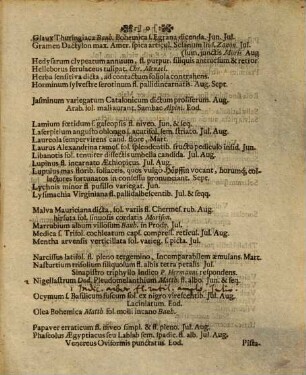 Glaux Thuringiaca Bauh. Bohemica f. Egrana dicenda. Jun. Jul.
Gramen Dactylon max. Amer. spica articul. Selanum Ind. Zanon. Jul.
(sum, junctis Moris. Aug
Hedysarum clypeatum annuum, fl. purpur. siliquis antrorsum & retror
Helleborus ferulaceus tulipat. Chr. Menzel.
Herba sensitiva dicta, ad contactum foliola contrahens.
Horminum sylvestre serotinum fl. pallidincarnatis. Aug. Sept.
Jasminum variegatum Catalonicum dictum proliferum. Aug.
Arab. fol. mali aurant. Sambac Alpini. Eod.
Lamium fœtidum f. galeopsis fl. niveo. Jun. & seq.
Laserpitium angusto oblongo f. acutiusf. sem. striato. Jul. Aug.
Laureola sempervirens cand. flore. Mart.
Laurus Alexandrina ramos. fol splendentib. fructo pediculo insid. Jun.
Libanotis fol. tenuiter dissectis umbella candida. Jul. Aug.
Lupinus fl. incarnato Æthiopicus. Jul. Aug.
Lupulus mas floris. foliaceis, quos vulgo Höpffin vocant, horumq; col-
lectores fortunatos in conjessu pronunciant. Sept.
Lychnis minor fl. pusillo variegat. Jun.
Lysimachia Virginiana fl. pallidalbescentib. Jul. & seqq.
Malva Mauritiana dicta, fol. variis fl. Chermes. rub. Aug.
hirsuta fol. sinuosis cordatis Morison.
Marrubium album villosum Bauh. in Prodr. Jul.
Medica f. Trifol. cochleatum caps. compress. reticul. Jul. Aug.
Mentha arvensis verticillata fol. varieg. f. picta. Jul.
Narcissus latifol. fl. pleno tergemino, Incomparabilem æmulans. Mart.
Nasturtium trifolium siliquosum fl. albis tetra petalis. Jul.
Sinapistro triphyllo Indico P. Hermanni respondens.
Nigellastrum Dod. Pseudomelanthium Matth. fl. albo. Jun. & seq.
Ocymum f. Basilicum fuscum fol. ex nigro virescentib. Jul. Aug.
Laciniatum. Eod.
Olea Bohemica Matth. fol. molli incano Bauh.
Papaver erraticum fl. niveo simpl. & fl. pleno. Jul. Aug.
Phaseolus Ægyptiacus seu Lablab sem. spadic. fl. alb. Jul. Aug.
Venereus Oviformis punctatus. Eod.
Pista-